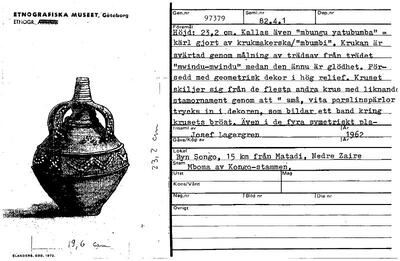 ETNOGRAFISKA MUSEET, Göteborg
ETNOGR.
23,2 cm
19,6 cm
ELANDERS, GBG, 1972.
Gen.nr
97379
82.4.1
Föremål
Höjd: 23,2 cm. Kallas även "mbungu yatubumba" =
kärl gjort av krukmakerska/"mbumbi". Krukan är
svärtad genom målning av trädsav från trädet
"mwindu-mwindu" medan den ännu är glödhet. För-
sedd med geometrisk dekor i hög relief. Kruset
skiljer sig från de flesta andra krus med liknande
stamornament genom att " små, vita porslinspärlor
tryckts in i dekoren, som bildar ett band kring
krusets bröst. Även i de fyra symetriskt pla-
Insaml av
Josef Lagergren
År
1962
Gåva/Köp av
År
Lokal
Byn Songo, 15 km från Matadi, Nedre Zaire
Stam
Mboma av Kongo-stammen.
Utst
Mag
Kons/Vård
Neg.nr
Bild nr
Dia nr
Övrigt